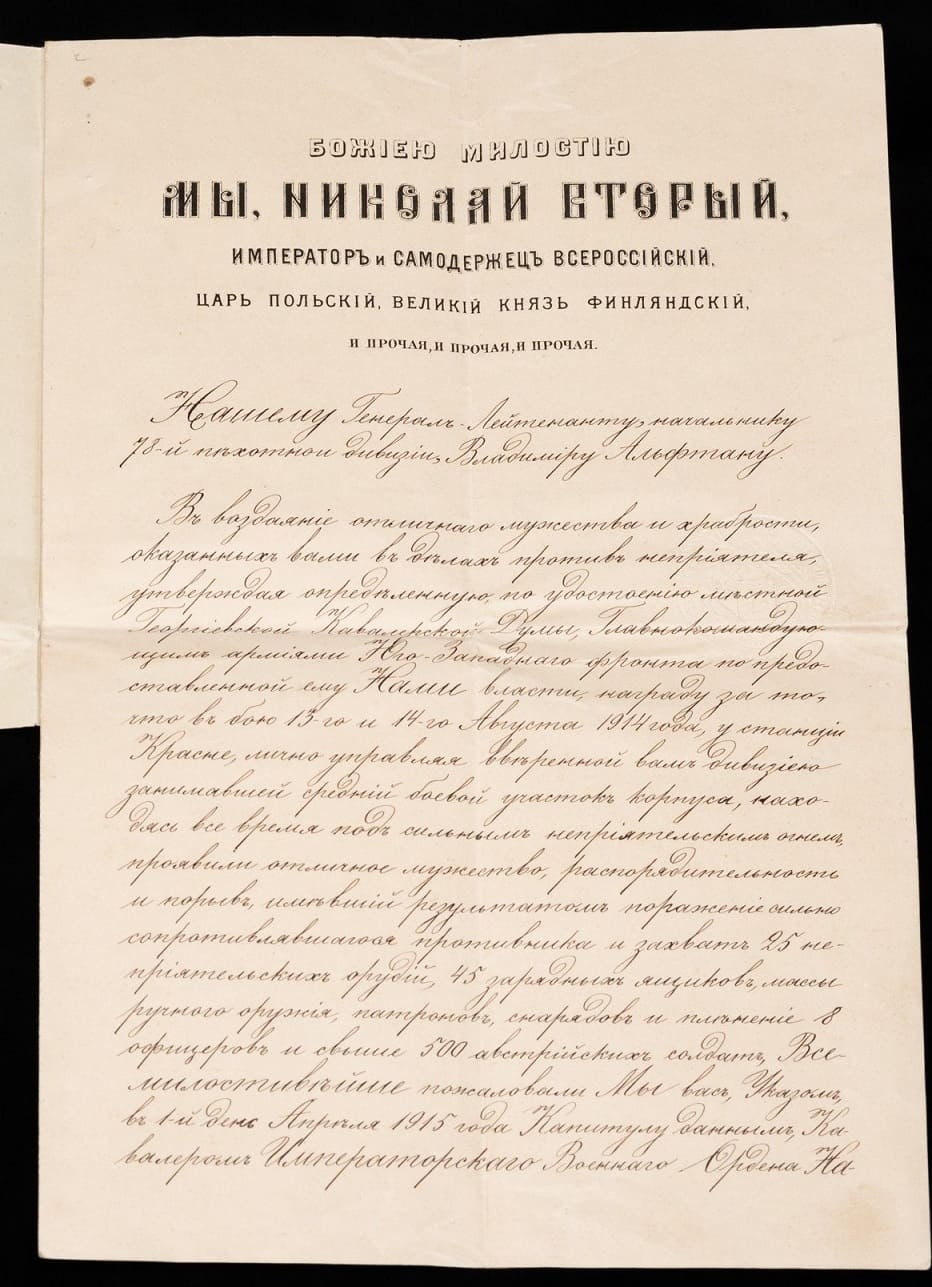 БОЖІЕЮ МИЛОСТІЮ
МЫ, НИКОЛАЙ ВТОРЫЙ,
ИМПЕРАТОРЪ и САМОДЕРЖЕЦЪ ВСЕРОССІЙСКІЙ,
ЦАРЬ ПОЛЬСКІЙ, ВЕЛИКІЙ КНЯЗЬ ФИНЛЯНДСКІЙ,
И ПРОЧАЯ, И ПРОЧАЯ, И ПРОЧАЯ.
Нашему Генералъ-Лейтенанту, начальнику
78-й пѣхотной дивизіи, Владиміру Альфтану.
Въ воздаяніе отличнаго мужества и храбрости,
оказанныхъ вами въ дѣлахъ противъ непріятеля,
утверждая опредѣленную, по удостоенію мѣстной
Георгіевской Кавалерской Думы, Главнокомандую-
щимъ арміями Юго-Западнаго фронта по предо-
ставленной ему Нами власти, награду за то,
что въ бою 13-го и 14-го Августа 1914 года, у станціи
Красне, лично управляя ввѣренной вамъ дивизіею
занимавшей средній боевой участокъ корпуса, нахо-
дясь все время подъ сильнымъ непріятельскимъ огнемъ,
проявили отличное мужество, распорядительность
и порывъ, имѣвшій результатомъ пораженіе сильно
сопротивлявшагося противника и захватъ 25 не-
пріятельскихъ орудій, 45 зарядныхъ ящиковъ, массы
ручного оружія, патроновъ, снарядовъ и плѣненіе 8
офицеровъ и свыше 500 австрійскихъ солдатъ, Все-
милостивѣйше пожаловали Мы васъ, Указомъ,
въ 1-й день Апрѣля 1915 года Капитулу даннымъ, Ка-
валеромъ Императорскаго Военнаго Ордена На-